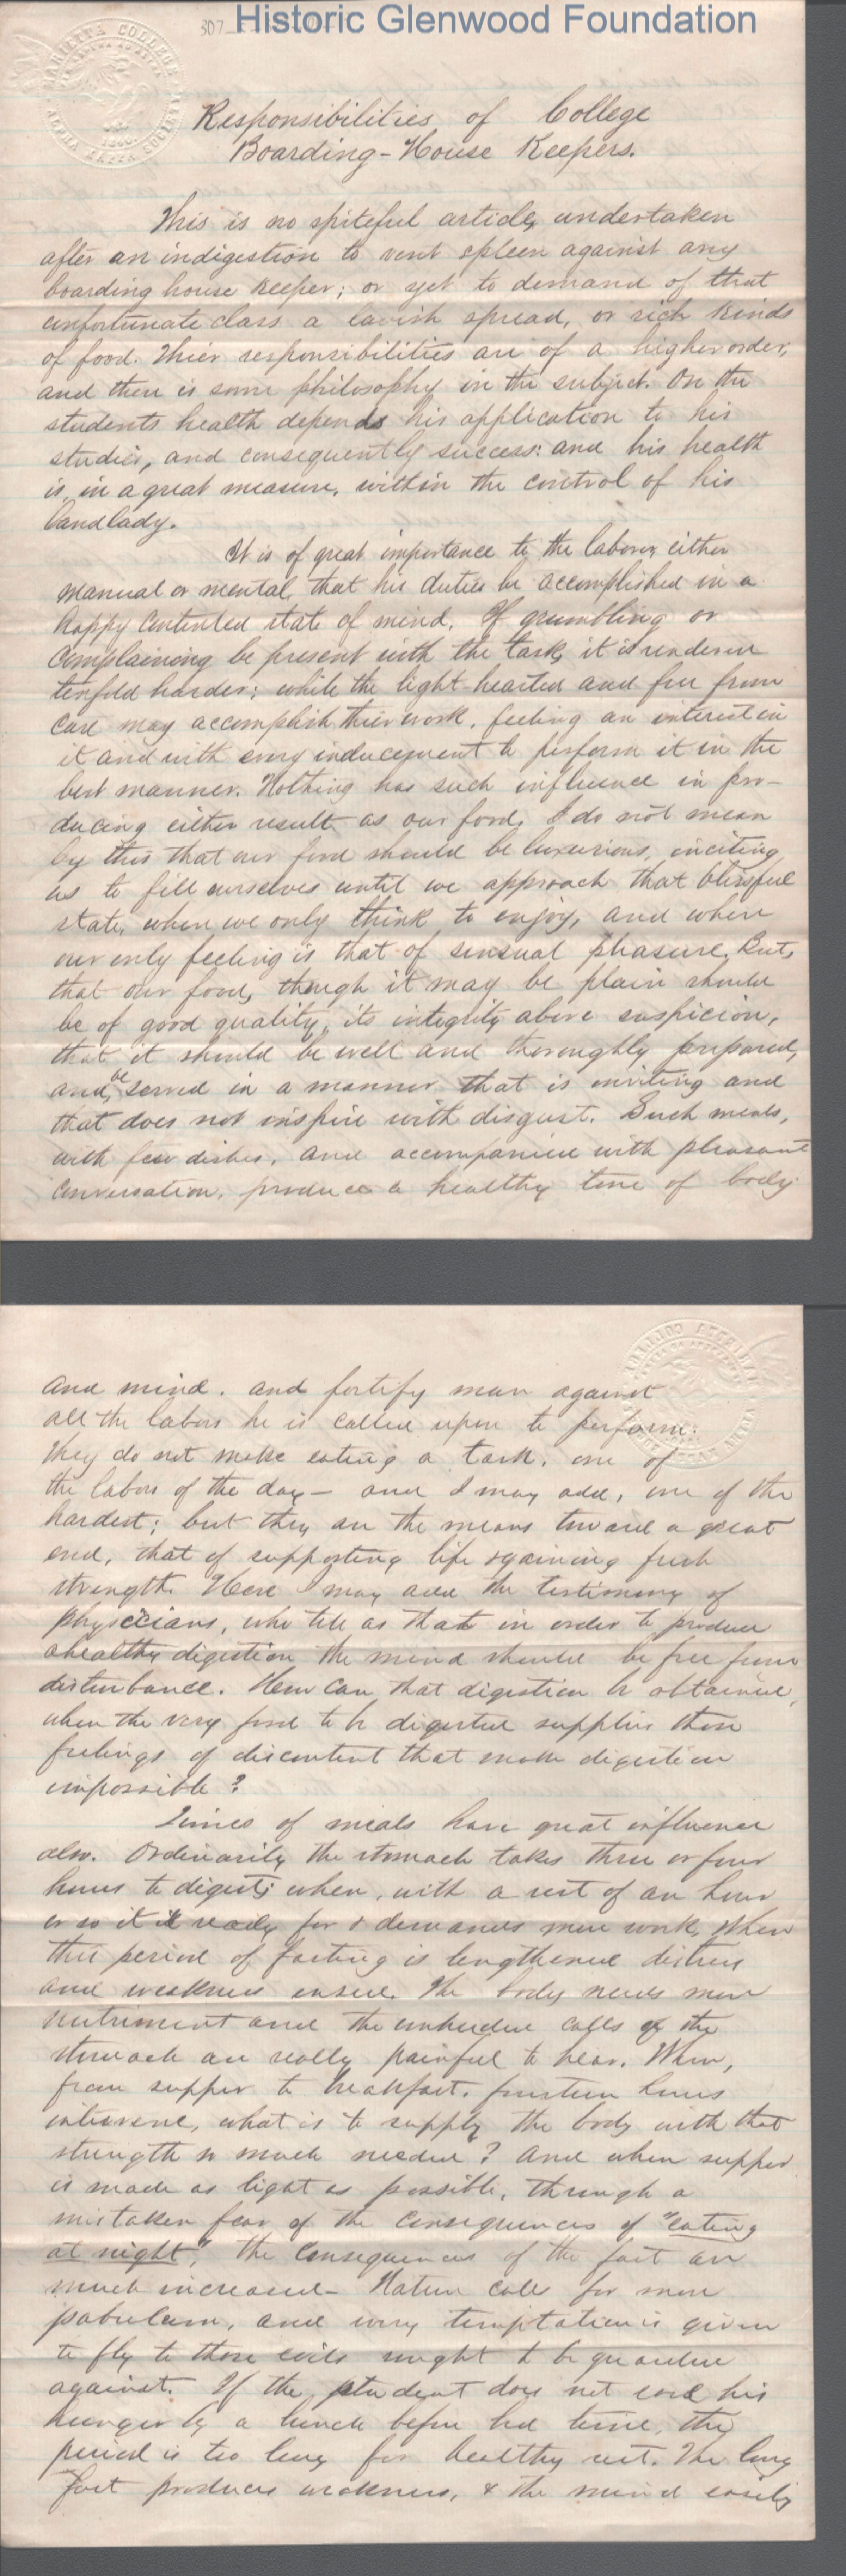 307
Historic Glenwood Foundation
MARIETTA COLLEGE
ALPHA KAPPA SOCIETY
Responsibilities of College
Boarding-House Keepers.
This is no spiteful article, undertaken
after an indigestion to vent spleen against any
boarding house keeper; or yet to demand of that
unfortunate class a lavish spread, or rich kinds
of food. Thier responsibilities are of a higher order,
and there is some philosophy in the subject. On the
students health depends his application to his
studies, and consequently success: and his health
is, in a great measure, within the control of his
landlady.
It is of great importance to the laborer, either
manual or mental, that his duties be accomplished in a
happy contented state of mind. If grumbling or
complaining be present with the task, it is rendered
tenfold harder; while the light-hearted and free from
care may accomplish thier work, feeling an interest in
it and with every inducement to perform it in the
best manner. Nothing has such influence in pro-
ducing either result as our food. I do not mean
by this that our food should be luxurious, inciting
us to fill ourselves until we approach that blissful
state, when we only think to enjoy, and when
our only feeling is that of sensual pleasure. But,
that our food, though it may be plain should
be of good quality, its integrity above suspicion,
that it should be well and thoroughly prepared,
and be served in a manner that is inviting and
that does not inspire with disgust. Such meals,
with few dishes, and accompanied with pleasant
conversation, produce a healthy tone of body
and mind, and fortify man against
all the labors he is called upon to perform.
They do not make eating a task, one of
the labors of the day — and I may add, one of the
hardest; but they are the means toward a great
end, that of supporting life & gaining fresh
strength. Here I may add the testimony of
physicians, who tell us that in order to produce
a healthy digestion the mind should be free from
disturbance. How can that digestion be obtained,
when the very food to be digested supplies those
feelings of discontent that make digestion
impossible?
Times of meals have great influence
also. Ordinarily the stomach takes three or four
hours to digest; when, with a rest of an hour
or so it is ready for & demands more work. When
this period of fasting is lengthened distress
and weakness ensue. The body needs more
nutriment and the unheeded calls of the
stomach are really painful to hear. When,
from supper to breakfast, fourteen hours
intervene, what is to supply the body with that
strength so much needed? And when supper
is made as light as possible, through a
mistaken fear of the consequences of "eating
at night", the consequences of the fast are
much increased — Nature calls for more
pabulum, and every temptation is given
to fly to those evils sought to be guarded
against. If the student does not end his
hunger by a lunch before bed time, the
period is too long for healthy rest. The long
fast produces weakness, & the mind easily